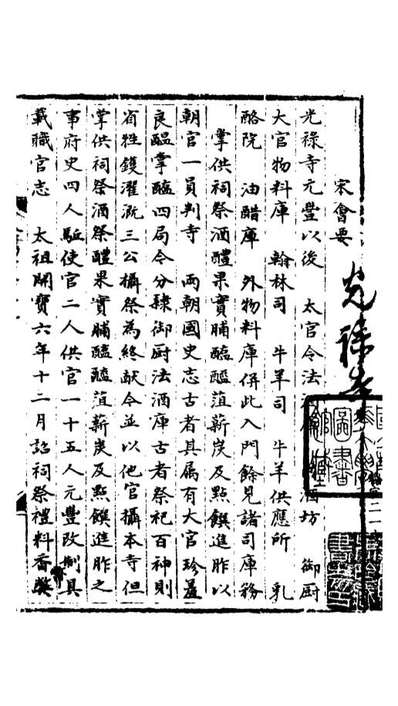 宋會要
光祿寺
光祿寺元豐以後 太官令法酒坊 御厨
大官物料庫 翰林司 牛羊司 牛羊供應所 乳
酪院 油醋庫 外物料庫併此入門餘見諸司庫務
掌供祠祭酒醴果實脯醢醓菹薪炭及點饌進胙以
朝官一員判寺 兩朝國史志古者其属有大官珍羞
良醖掌醢四局令分隸御厨法酒庫古者祭祀百神則
省牲鑊濯溉三公攝祭為終献令並以他官攝本寺但
掌供祠祭酒祭醴果實脯醢醓菹薪炭及點饌進胙之
事府史四人驅使官二人供官一十五人元豐改制具
載職官志 太祖開寶六年十二月詔祠祭禮料香幣
圖書